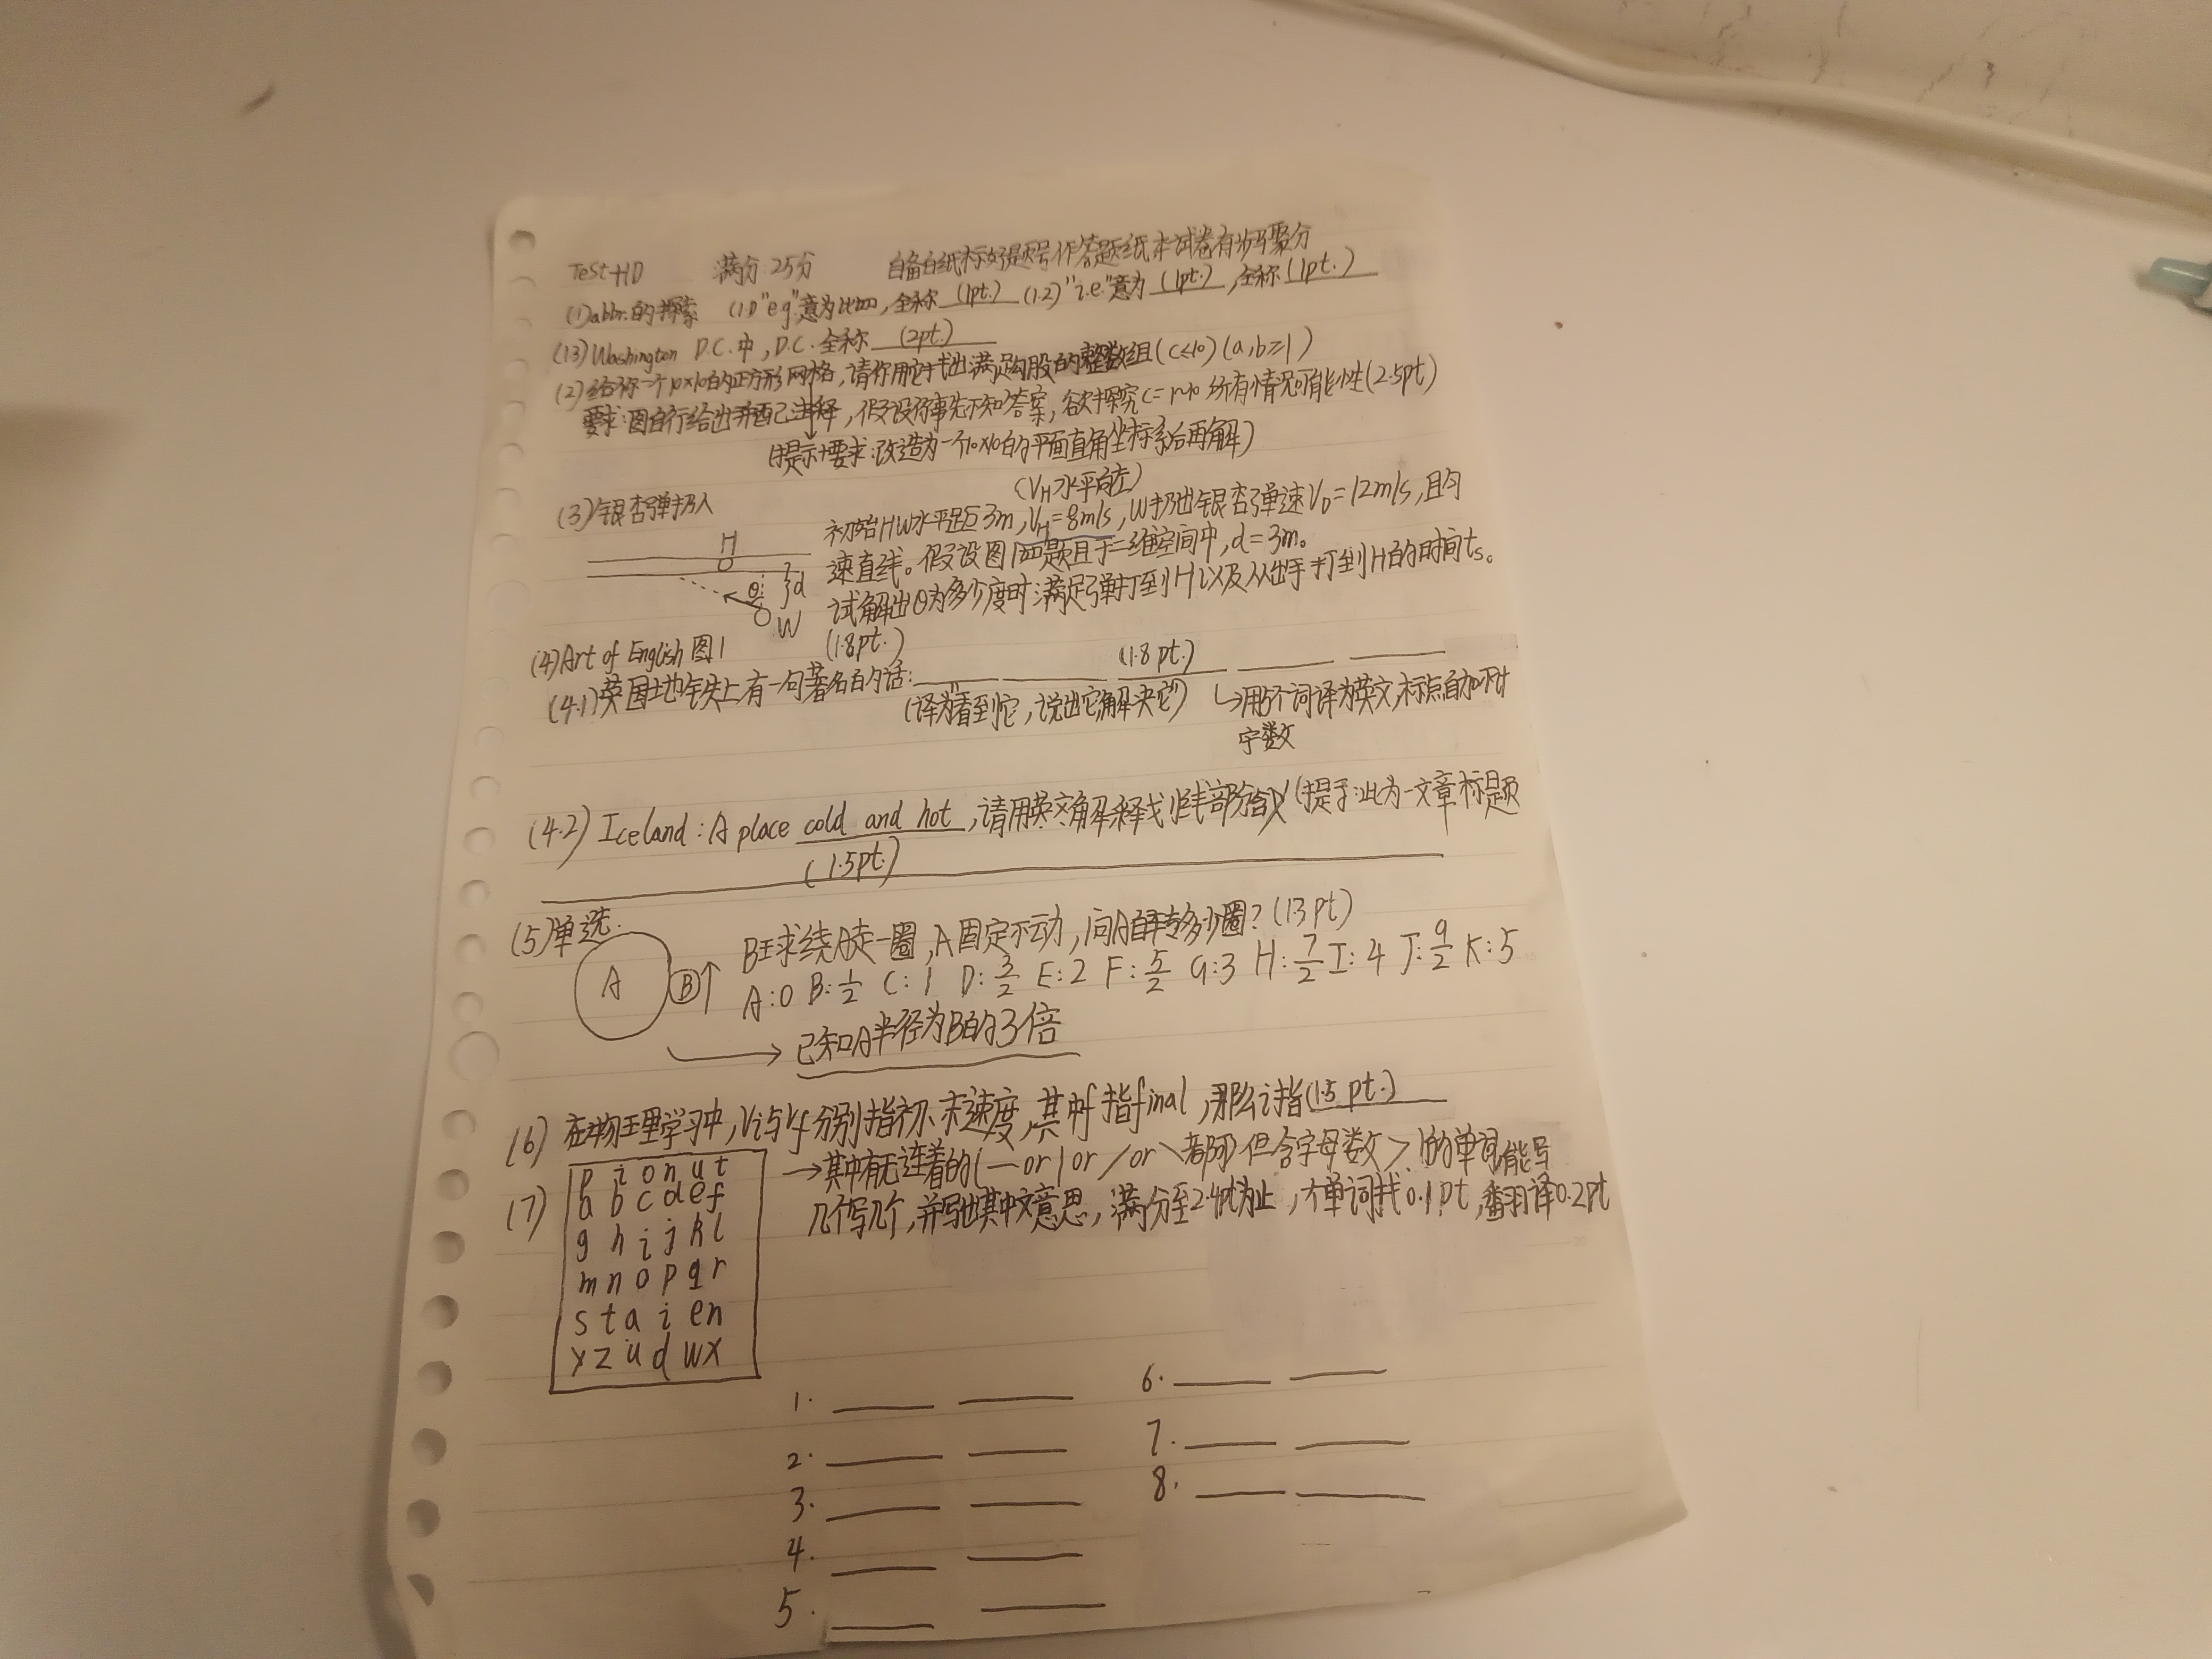 Test+HD 满分25分 自备白纸标好题号作答题纸 本试卷有步骤分
(1)abbr.的探索 (1.1)"e.g"意为比如,全称 (1pt.) (1.2)"i.e."意为 (1pt.),全称(1pt.)
(1.3)Washington D.C.中,D.C.全称 (2pt.)
(2)给你一个10×10的正方形网格,请你用它找出满足勾股的整数组(c≤10)(a,b≥1)
要求:图自行给出并配已注释,假设你事先不知答案,欲探究c=1~10所有情况可能性(2.5pt)
(提示+要求:改造为一个10×10的平面直角坐标系后再解)
(3)银杏弹扔人
(VH水平向左)
初始HW水平距3m,VH=8m/s,W扔出银杏弹速VD=12m/s,且匀
速直线。假设图1如题且于二维空间中,d=3m。
试解出θ为多少度时满足弹打到H以及从出手打到H的时间ts。
H
θ
d
W
图1
(1.8pt.) (1.8pt.)
(4)Art of English
(4.1)英国地铁上有一句著名的话:
(译为"看到它,说出它解决它") ↳用5个词译为英文,标点自加不计
字数
(4.2) Iceland: A place cold and hot,请用英文解释划线部分含义(提示:此为一文章标题
(1.5pt.)
(5)单选.
A B↑
B王求绕A走一圈,A固定不动,问A自转多少圈?(1.3pt)
A:0 B:1/2 C:1 D:3/2 E:2 F:5/2 G:3 H:7/2 I:4 J:9/2 K:5
→ 已知A半径为B的3倍
(6) 在物理学习中,Vi与Vf分别指初、末速度,其中f指final,那么i指(1.5 pt.)
(7)
p i o n u t
a b c d e f
g h i j k l
m n o p q r
s t a i e n
y z u d w x
→其中有无连着的(—or | or / or \ 都可)但含字母数>1的单词,能写
几个写几个,并写出其中文意思,满分至2.4pt为止,个单词找0.1pt,翻译0.2pt
1.
2.
3.
4.
5.
6.
7.
8.